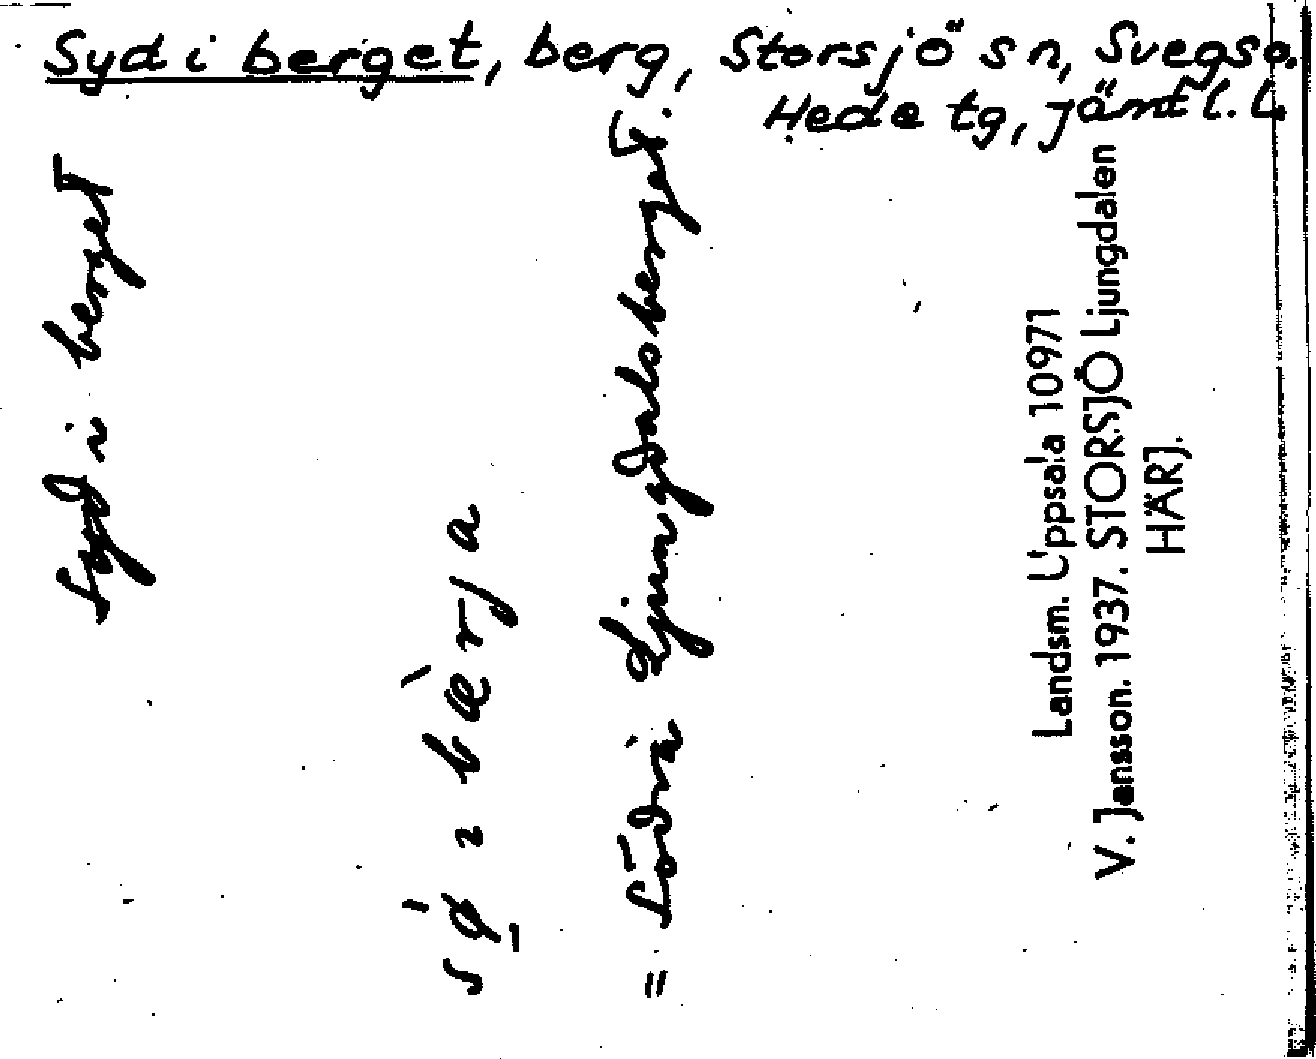 Syd i berget, berg, Storsjö sn, Svegs o.
Hede tg, Jämtl. L
Syd i berget
sǿ̱ ı bæ̀rja
= Södra Ljungdalsberget.
Landsm. Uppsala 10971
V. Jansson. 1937. STORSJÖ Ljungdalen
HÄRJ.